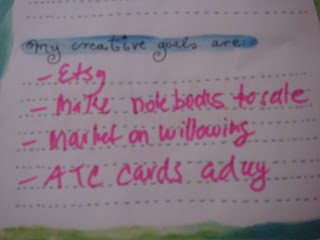 My creative goals are
- Etsy
- Make notebooks to sale
- Market on willowing
- ATC cards a day